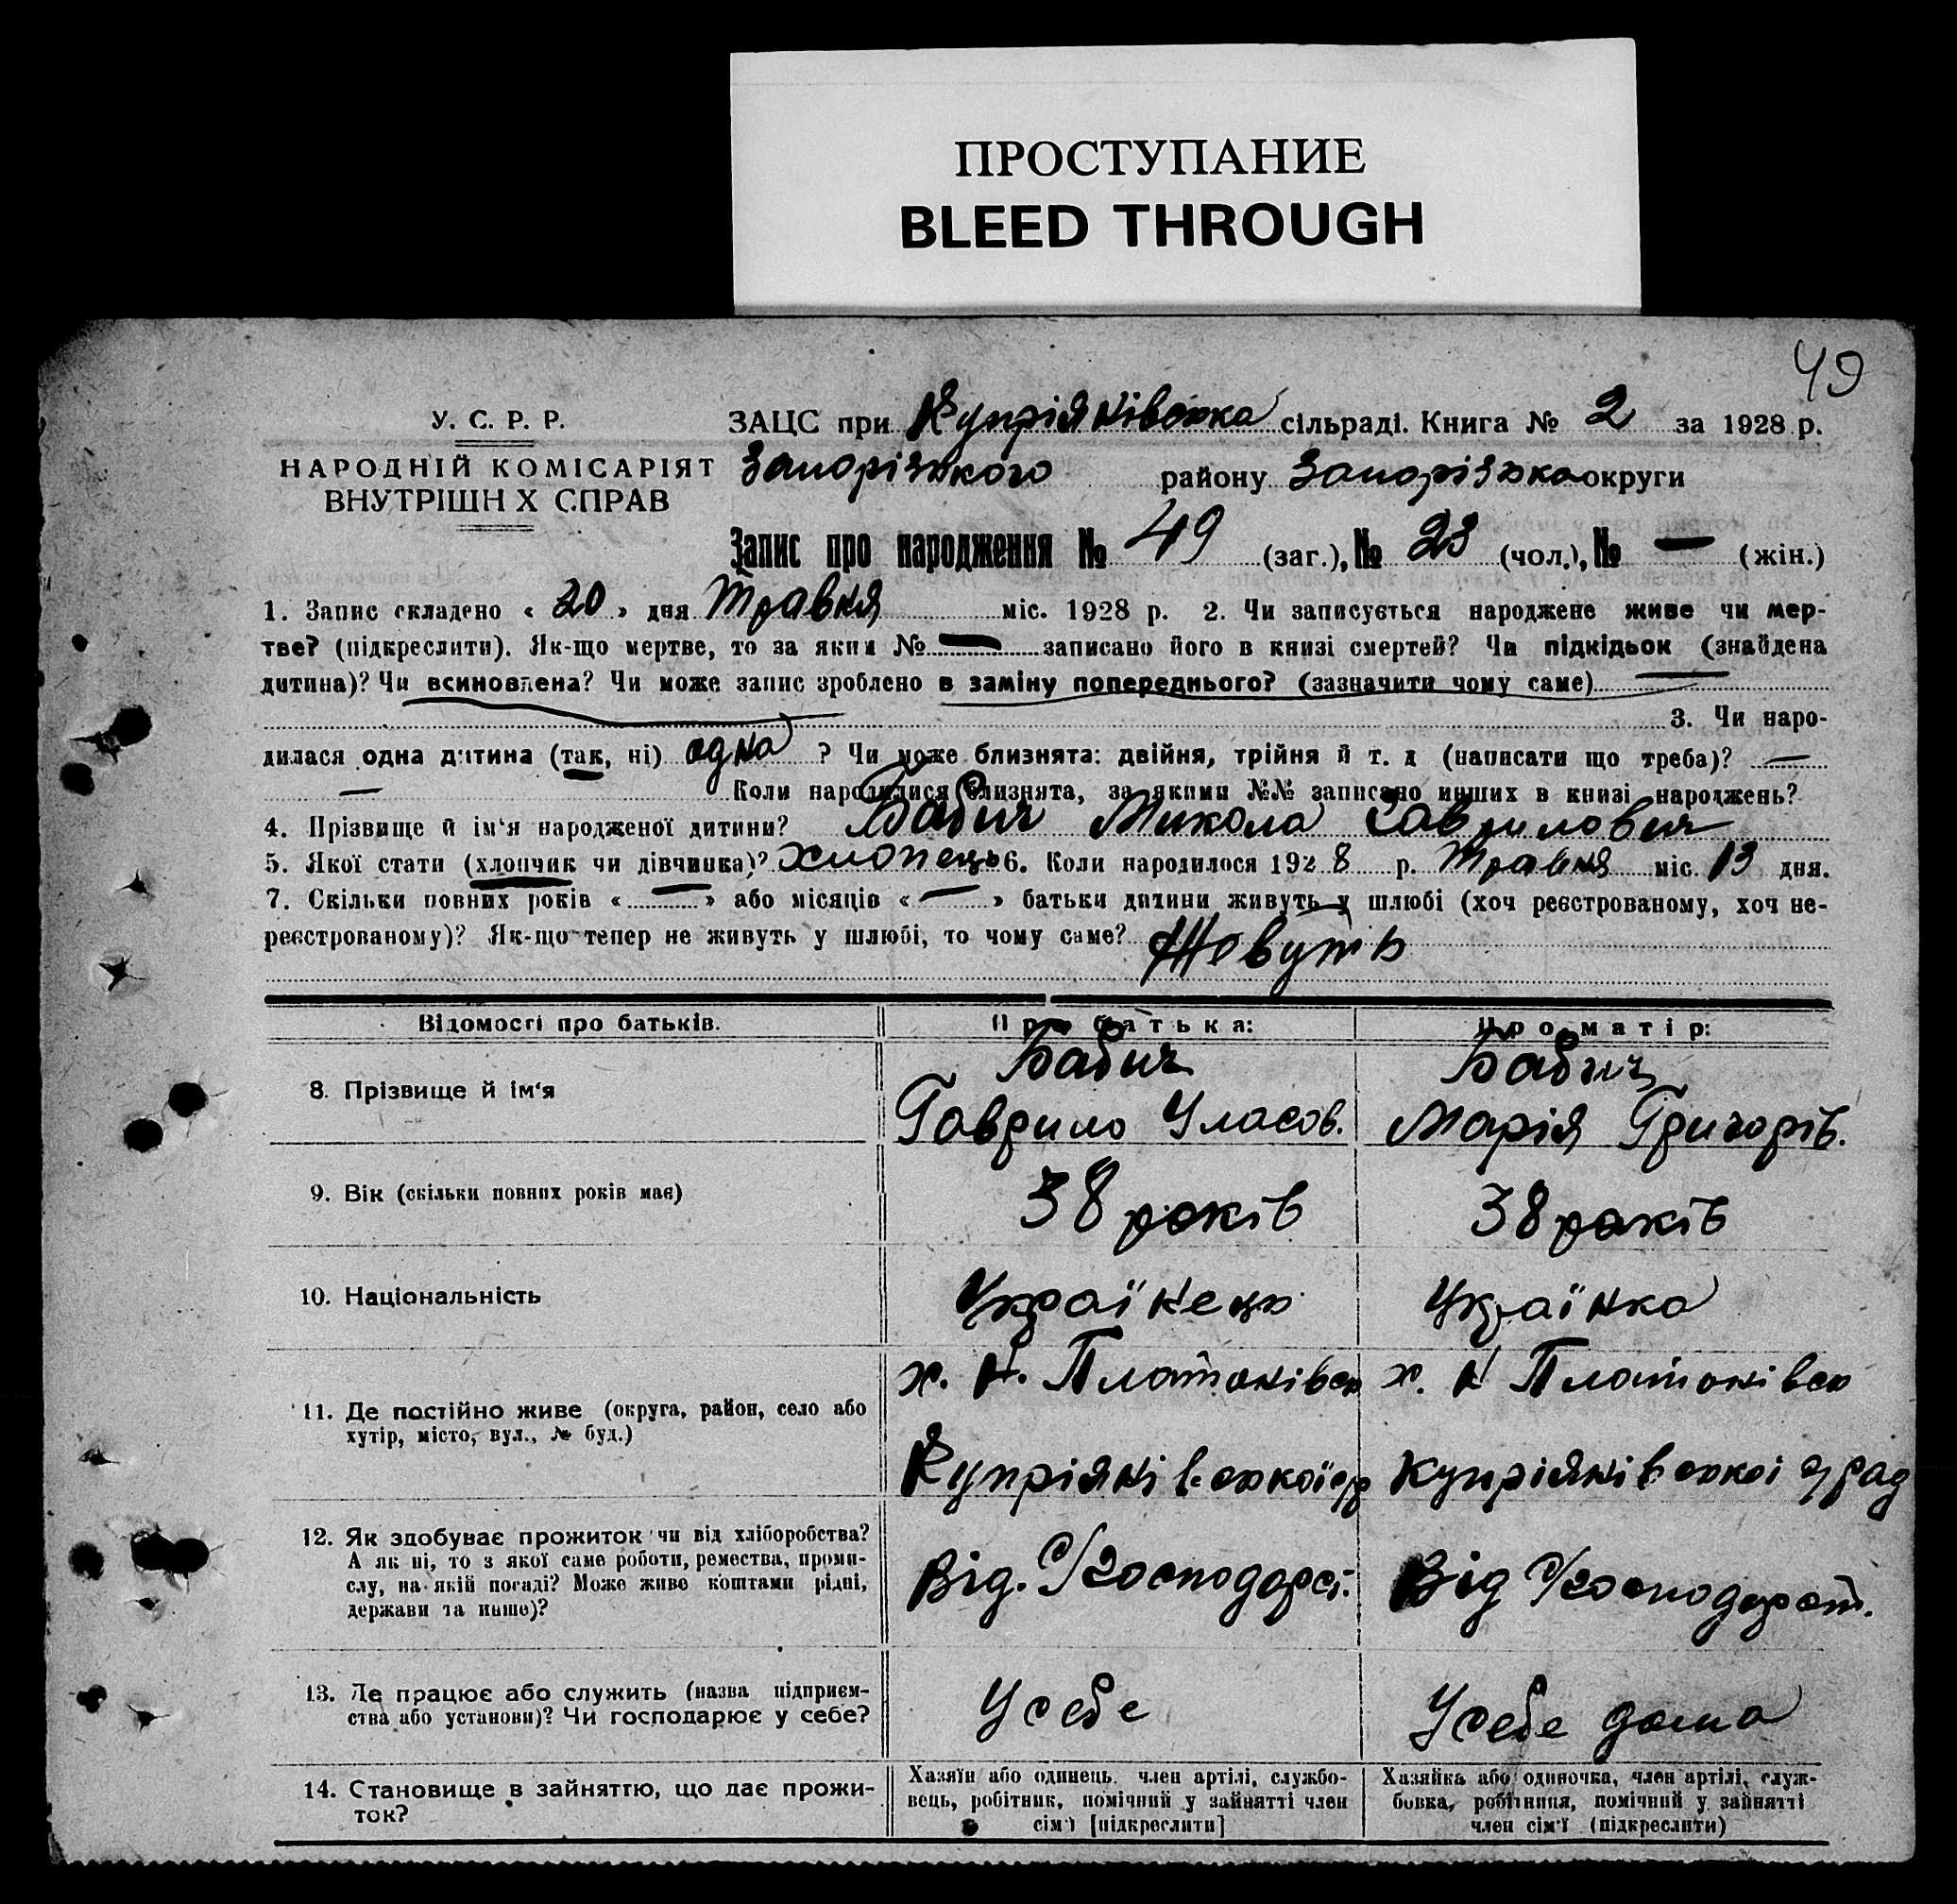 ПРОСТУПАНИЕ
BLEED THROUGH
49
У. С. Р. Р.
НАРОДНІЙ КОМІСАРІЯТ
ВНУТРІШН Х СПРАВ
ЗАЦС при Купріянівська сільраді. Книга № 2 за 1928 р.
Запорізького району Запорізька округи
Запис про народження № 49 (заг.), № 23 (чол.), № — (жін.)
1. Запис складено « 20 » дня Травня міс. 1928 р. 2. Чи записується народжене живе чи мер-
тве? (підкреслити). Як-що мертве, то за яким № — записано його в книзі смертей? Чи підкідьок (знайдена
дитина)? Чи всиновлена? Чи може запис зроблено в заміну попереднього? (зазначити чому саме) —
3. Чи наро-
дилася одна дитина (так, ні) одна ? Чи може близнята: двійня, трійня й т. д (написати що треба)? —
— Коли народилися близнята, за якими №№ записано инших в книзі народжень?
4. Прізвище й ім'я народженої дитини? Бабич Микола Гаврилович
5. Якої стати (хлопчик чи дівчинка)? Хлопець 6. Коли народилося 1928 р. Травня міс. 13 дня.
7. Скільки повних років « — » або місяців « — » батьки дитини живуть у шлюбі (хоч реєстрованому, хоч не-
реєстрованому)? Як-що тепер не живуть у шлюбі, то чому саме? Жевуть
Відомості про батьків. Про батька: Про матір:
8. Прізвище й ім'я
Бабич
Гаврило Уласов.
Бабич
Марія Григорів.
9. Вік (скільки повних років має) 38 років 38 років
10. Національність Українець Українка
11. Де постійно живе (округа, район, село або
хутір, місто, вул., № буд.)
х. Н. Платонівсь
Купріянівської ср
х. Н Платонівсь
Купріянівскої с/рад
12. Як здобуває прожиток чи від хліборобства?
А як ні, то з якої саме роботи, ремества, проми-
слу, на якій посаді? Може живе коштами рідні,
держави та инше)?
Від. С/господарст.
Від С/господарст.
13. Де працює або служить (назва підприєм-
ства або установи)? Чи господарює у себе?
У себе
У себе дома
14. Становище в зайняттю, що дає прожи-
ток?
Хазяїн або одинець, член артілі, службо-
вець, робітник, помічний у зайнятті член
сім'ї [підкреслити]
Хазяйка або одиночка, член артілі, служ-
бовка, робітниця, помічний у зайнятті
член сім'ї (підкреслити)